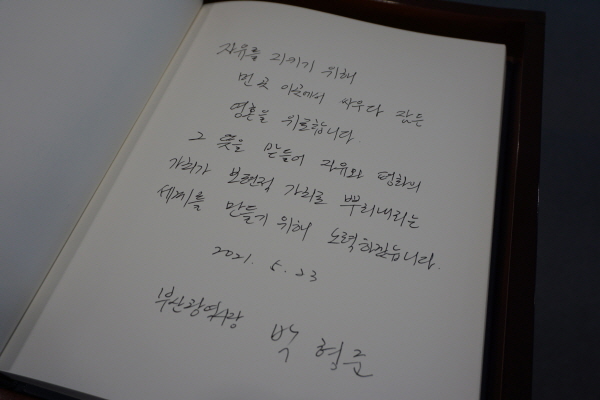 자유를 지키기 위해
먼 곳 이곳에서 싸우다 잠든
영혼을 위로합니다.
그 뜻을 받들어 자유와 평화의
가치가 보편적 가치로 뿌리내리는
세계를 만들기 위해 노력하겠습니다.
2021. 5. 23
부산광역시장 박형준